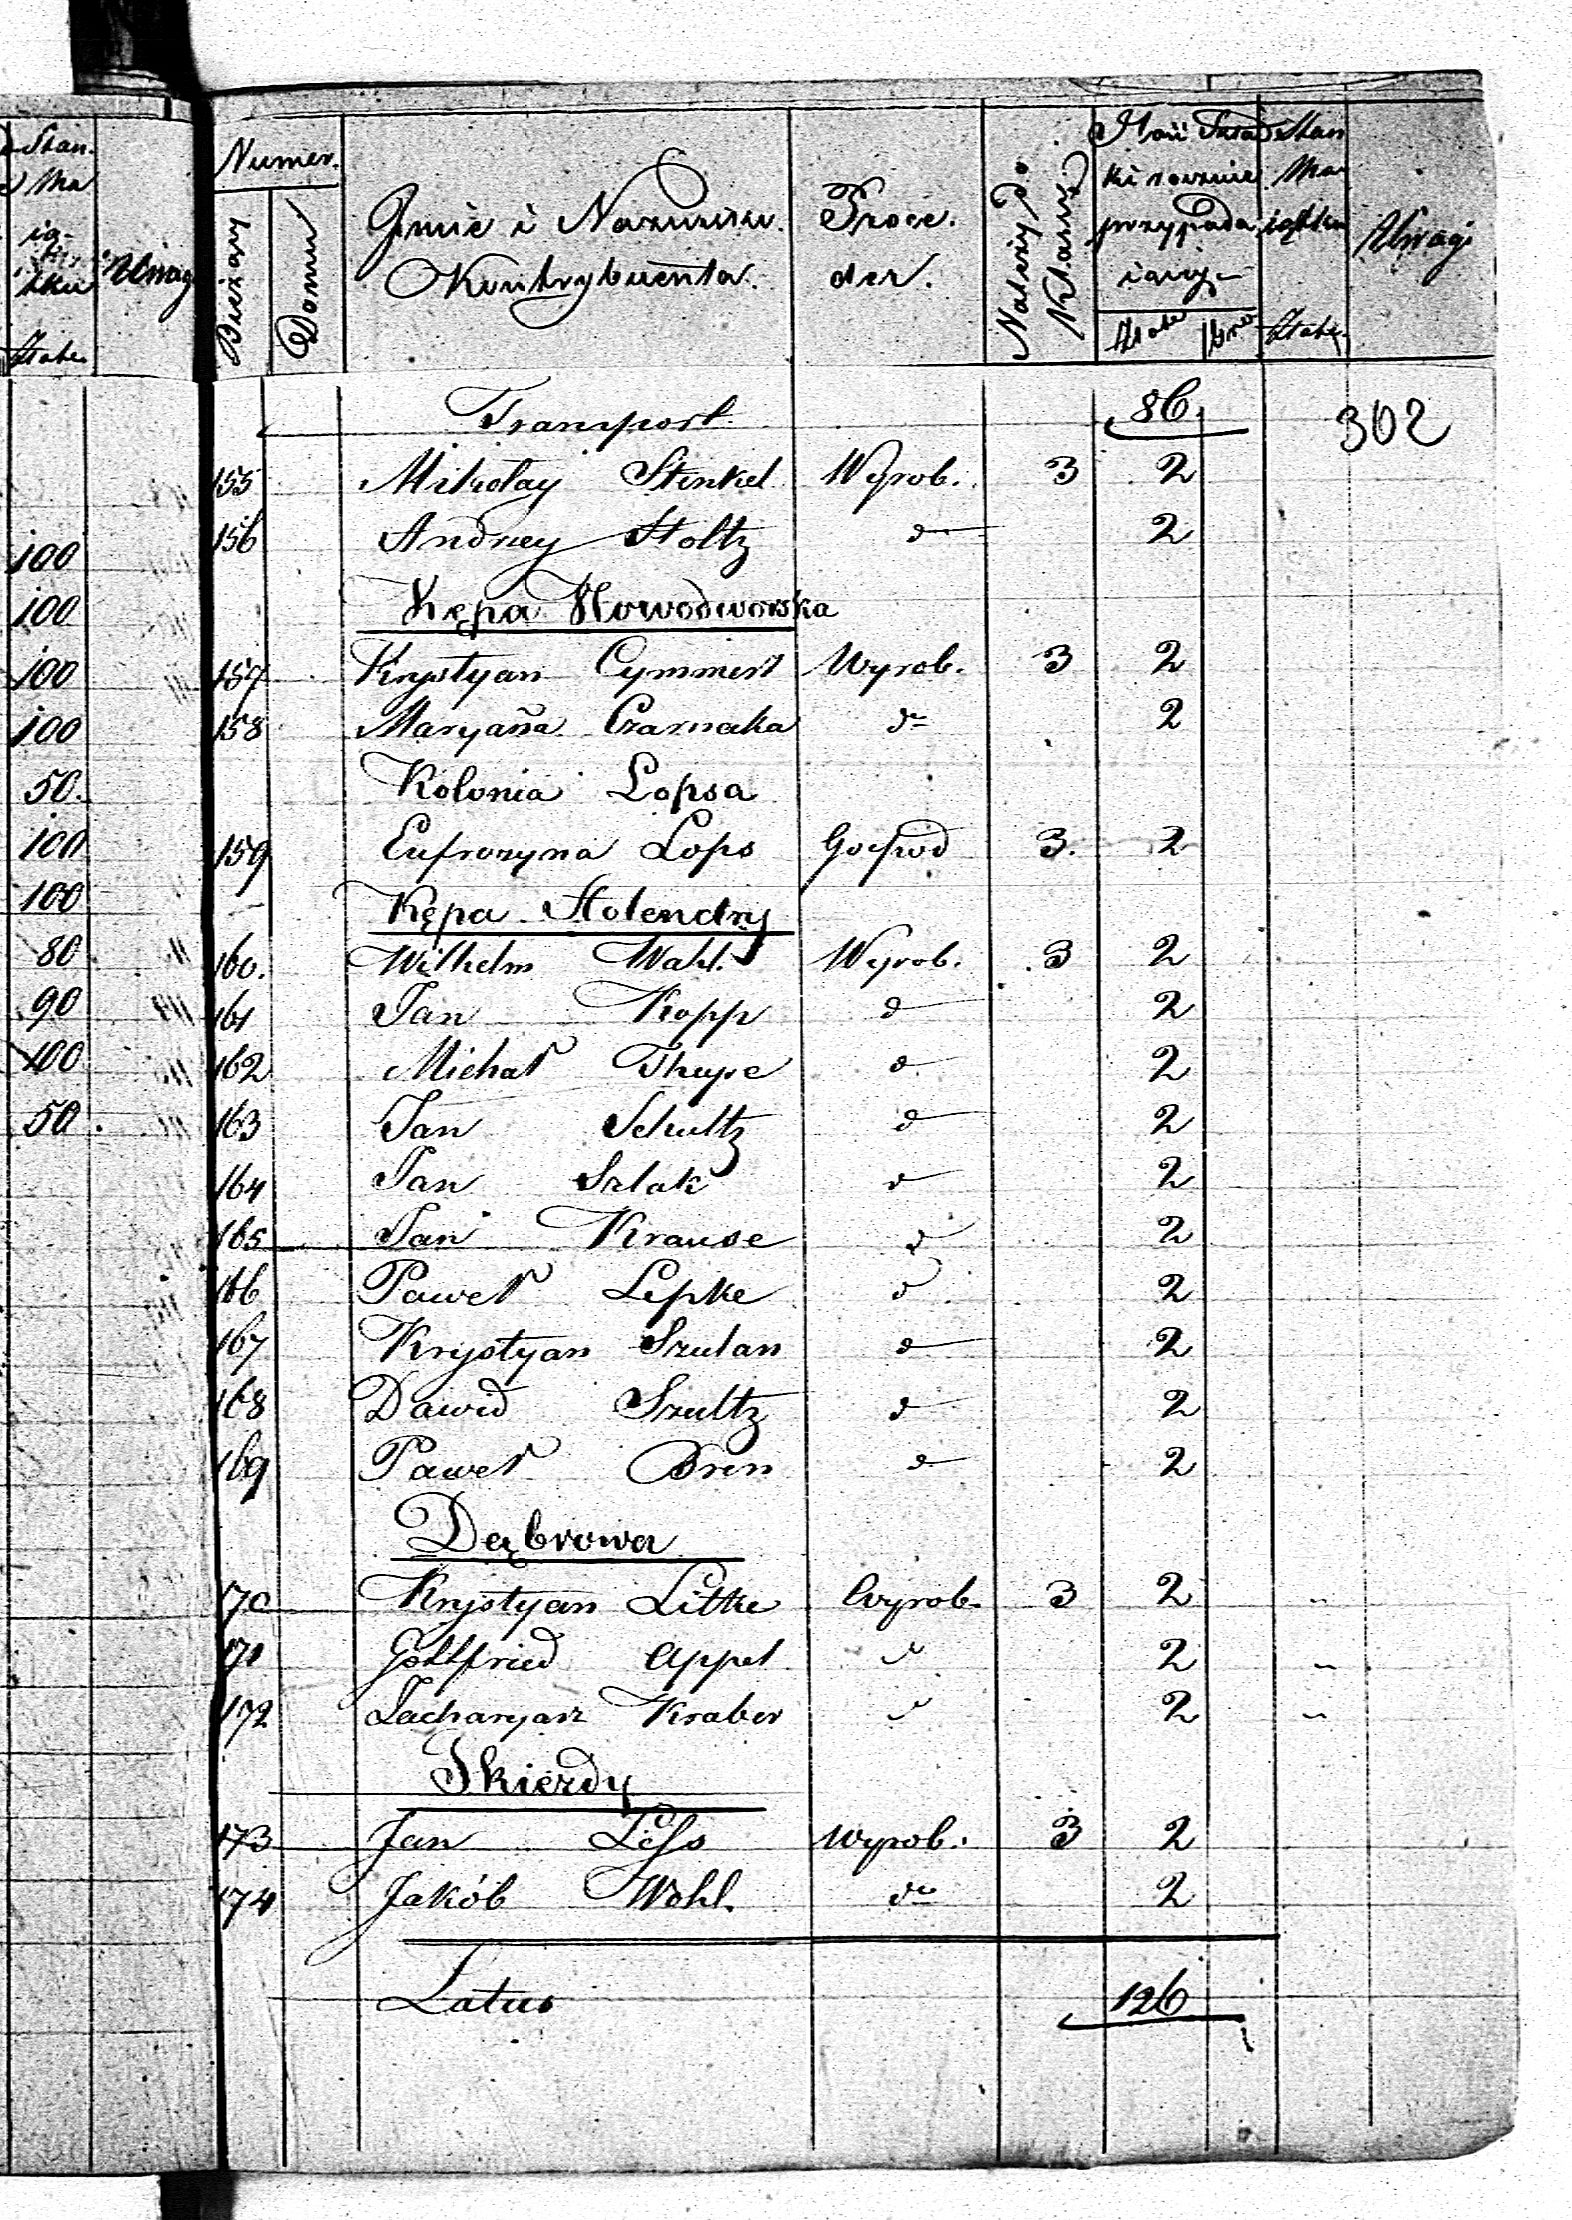 Stan
Ma
ią-
tku
Uwagi
Złote
100
100
100
100
50.
100
100
80
90
100
50
Numer.
Bieżący
Domu
Jmie i Nazwisko
Kontrybuenta.
Proce-
der.
Należy do
Klassy
Ilość Skład
ki rocznie
przypada
iący
Złote
Gro
Stan
Ma
iątku
Złote
Uwagi
302
Transport 86.
155 Mikołay Stenkel Wyrob. 3 2
156 Andrzey Stoltz d 2
Kępa Nowodworska
157 Krystyan Cymmert Wyrob. 3 2
158 Maryaña Czarnecka do 2
Kolonia Lopsa
159 Eufrozyna Lops Gospod 3. 2
Kępa Holendry
160. Wilhelm Wahl. Wyrob. 3 2
161 Jan Kopp d 2
162 Michał 2
163 Jan Schultz d 2
164 Jan Szlak d 2
165 Jan Krause d 2
166 Paweł Lepke d 2
167 Krystyan Szulan d 2
168 Dawid Szultz d 2
169 Paweł Bren d 2
Dąbrowa
170 Krystyan Litke Wyrob. 3 2 "
171 Gottfried Appel " 2 "
172 Zacharyasz Kraber " 2 "
Skierdy
173 Jan Less Wyrob. 3 2
174 Jakób Wohl. do 2
Latus 126